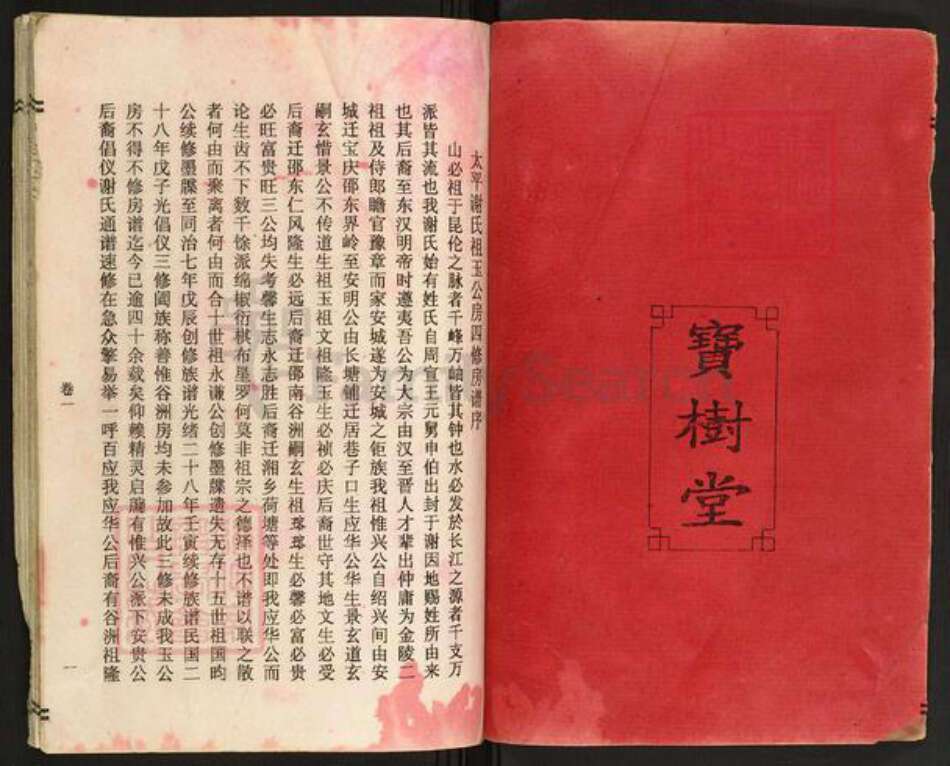 寶樹堂
太平谢氏祖玉公房四修房谱序
山必祖于昆伦之脉者千峰万岫皆其钟也水必发於长江之源者千支万
派皆其流也我谢氏始有姓氏自周宣王元舅申伯出封于谢因地赐姓所由来
也其后裔至东汉明帝时邀夷吾公为大宗由汉至晋人才辈出仲庸为金陵二
祖祖及侍郎瞻官豫章而家安城遂为安城之钜族我祖惟兴公自绍兴间由安
城迁宝庆邵东界岭至安明公由长塘铺迁居巷子口生应华公华生景玄道玄
嗣玄惜景公不传道生祖玉祖文祖隆玉生必祯必庆后裔世守其地文生必受
后裔迁邵东仁风隆生必远后裔迁邵南谷洲嗣玄生祖琢琢生必馨必富必贵
必旺富贵旺三公均失考馨生志永志胜后裔迁湘乡荷塘等处即我应华公而
论生齿不下数千馀派绵椒衍棋布星罗何莫非祖宗之德泽也不谱以联之散
者何由而聚离者何由而合十世祖永谦公创修墨牒遗失无存十五世祖国昀
公续修墨牒至同治七年戊辰创修族谱光绪二十八年壬寅续修族谱民国二
十八年戊子光倡仪三修阖族称善惟谷洲房均未参加故此三修未成我玉公
房不得不修房谱迄今已逾四十余载矣仰赖精灵启牖有惟兴公派下安贵公
后裔倡仪谢氏通谱速修在急众擎易举一呼百应我应华公后裔有谷洲祖隆
卷一
一
FamilySearch